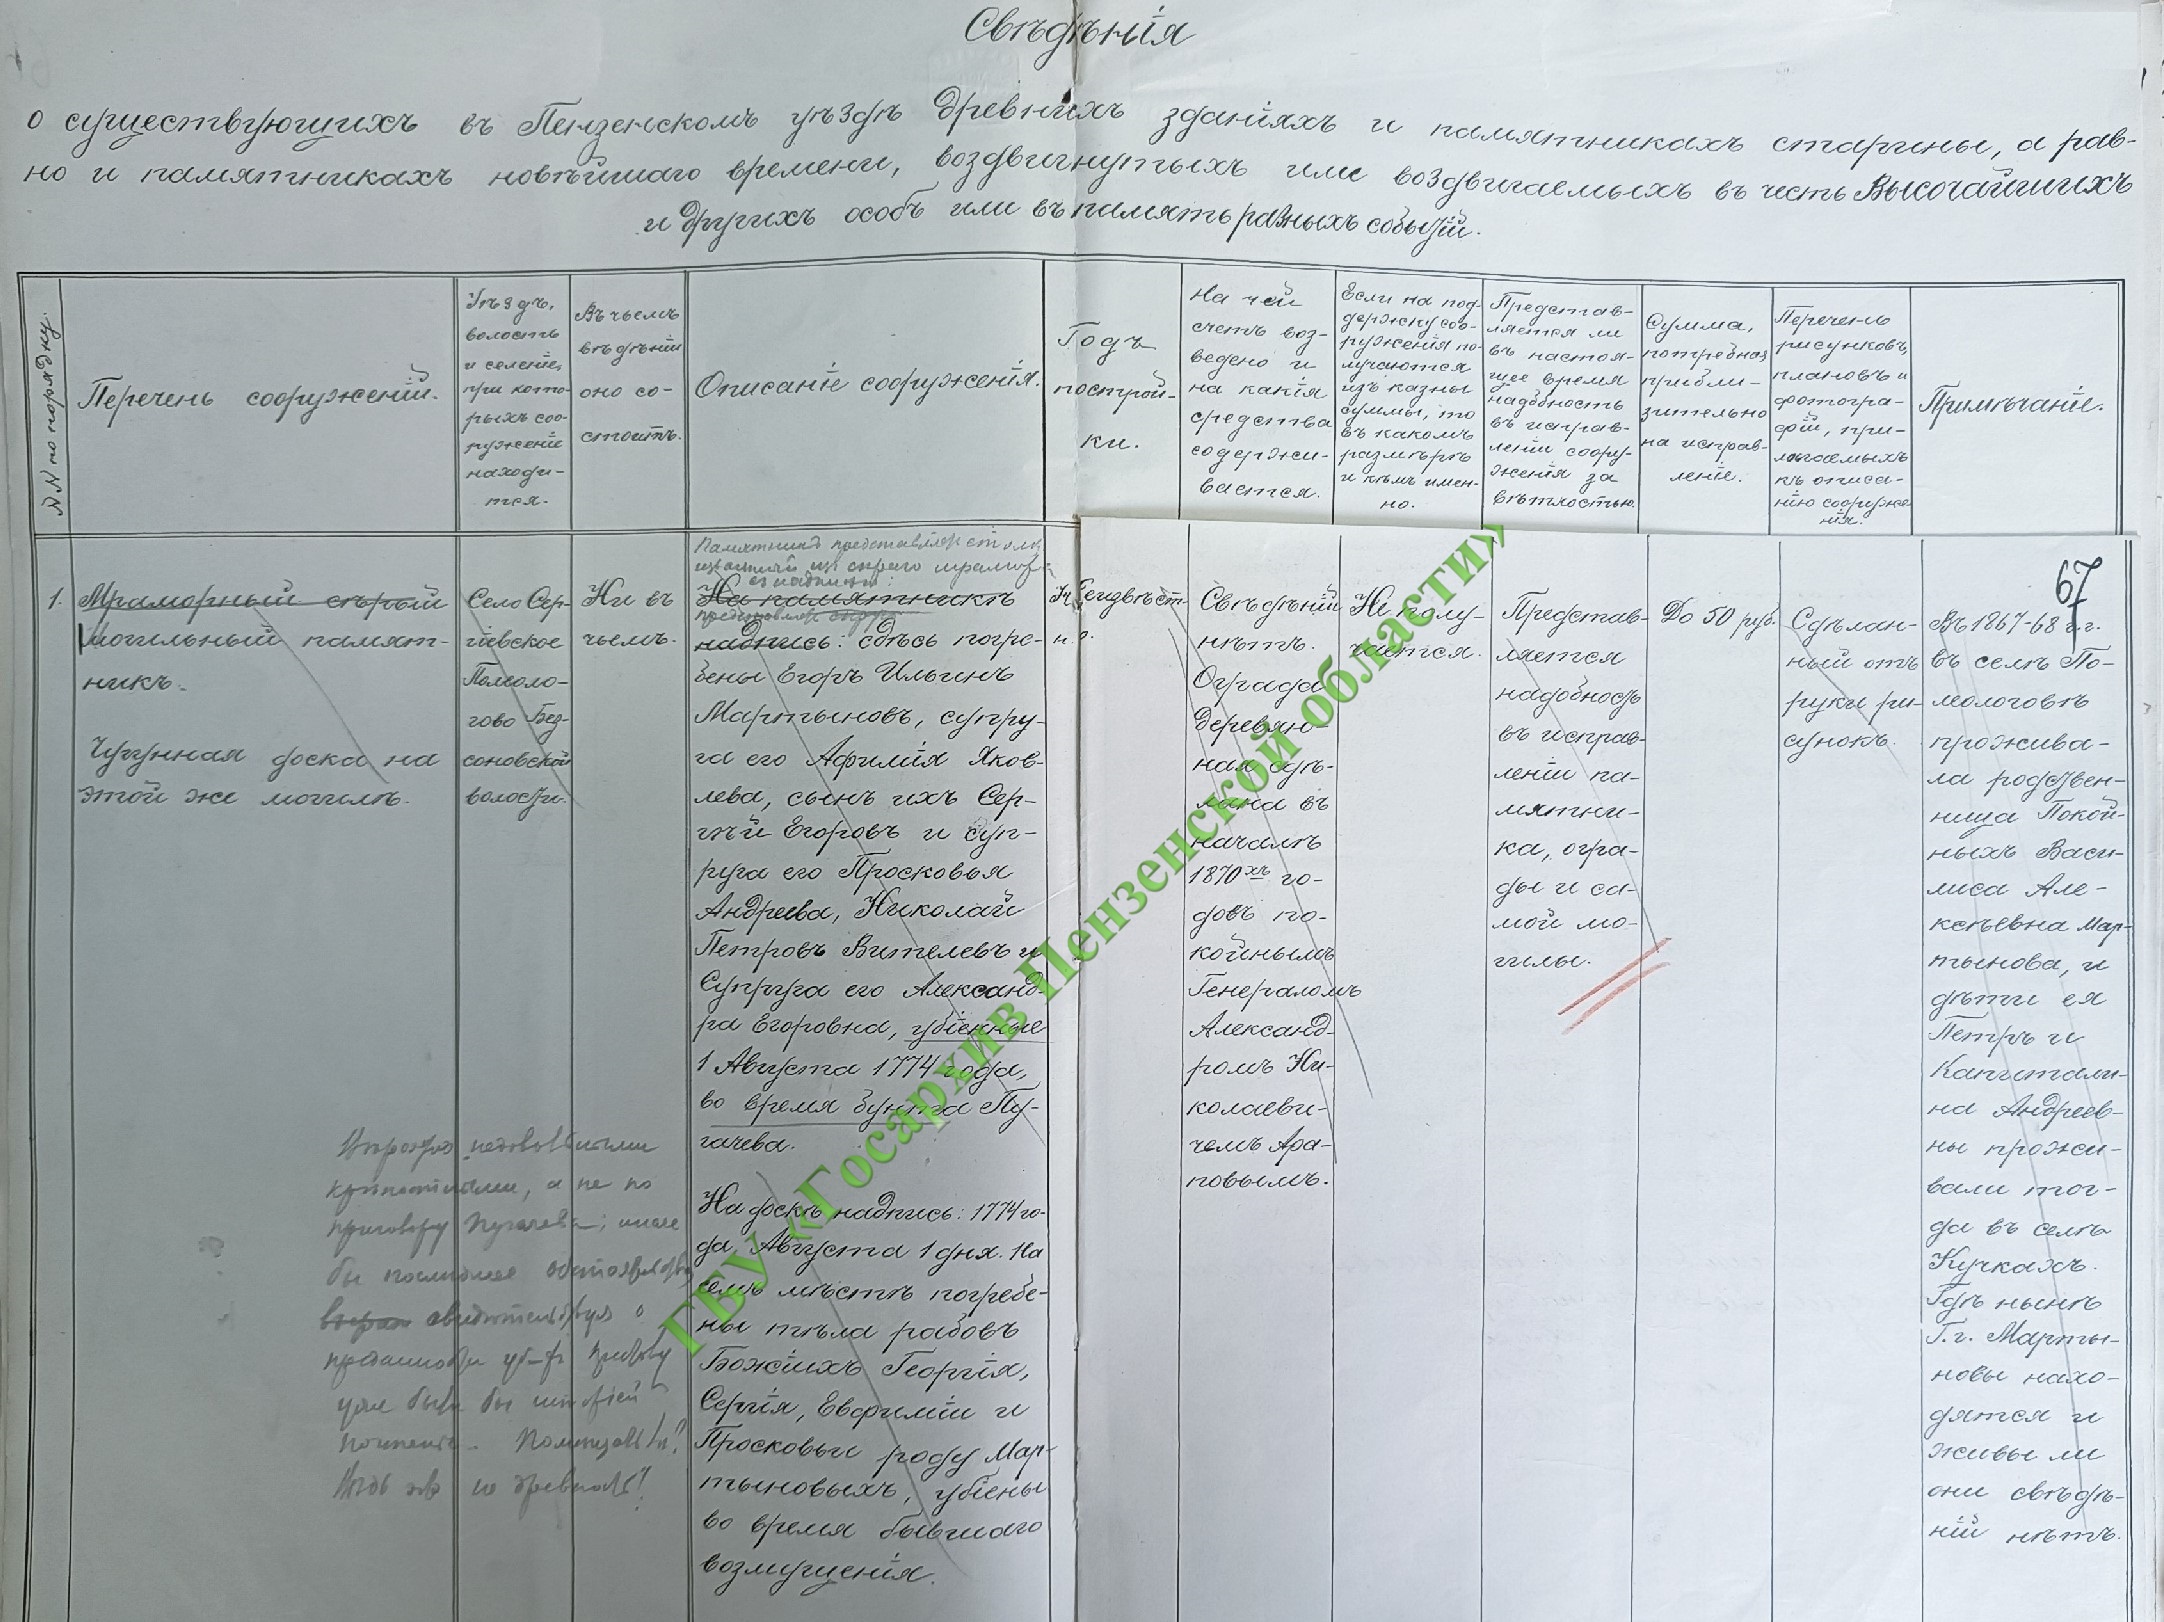 Свѣдѣнія
о существующихъ въ Пензенскомъ уѣздѣ древнихъ зданіяхъ и памятникахъ старины, а рав-
но и памятникахъ новѣйшаго времени, воздвигнутыхъ или воздвигаемыхъ въ честь Высочайшихъ
и другихъ особъ или въ память разныхъ событій.
№№ по порядку.
Перечень сооруженій.
Уѣздъ,
волость
и селеніе,
при кото-
рыхъ соо-
руженіе
находи-
тся.
Въ чьемъ
вѣдѣніи
оно со-
стоитъ.
Описаніе сооруженія.
Годъ
построй-
ки.
На чей
счетъ воз-
ведено и
на какія
средства
содержи-
вается.
Если на под-
держку соо-
руженія по-
лучаются
изъ казны
суммы, то
въ какомъ
размѣрѣ
и кѣмъ имен-
но.
Представ-
ляется ли
въ настоя-
щее время
надобность
въ исправ-
леніи соору-
женія за
ветхостью.
Сумма,
потребная
прибли-
зительно
на исправ-
леніе.
Перечень
рисунковъ,
плановъ и
фотогра-
фій, при-
лагаемыхъ
къ описа-
нію сооруже-
нія.
Примѣчаніе.
67
1.
Мраморный сѣрый
могильный памят-
никъ.
Чугунная доска на
этой же могилѣ.
Село Сер-
гіевское
Полеоло-
гово Без-
соновской
волости.
Ни въ
чьемъ.
Памятникъ представляетъ
изъ сѣраго мрамора
съ надписью:
На памятникѣ
надпись: сдѣсь погре-
бены Егоръ Ильинъ
Мартыновъ, супру-
га его Афимія Яков-
лева, сынъ ихъ Сер-
гѣй Егоровъ и суп-
руга его Просковья
Андреева, Николай
Петровъ Вителевъ и
Супруга его Александ-
ра Егоровна, убіенные
1 Августа 1774 года,
во время бунта Пу-
гачева.
На доскѣ надпись: 1774 го-
да Августа 1 дня. На
семъ мѣстѣ погребе-
ны тѣла рабовъ
Божіихъ Георгія,
Сергія, Евфиміи и
Просковьи роду Мар-
тыновыхъ, убіены
во время бывшаго
возмущенія.
Неизвѣст-
но.
Свѣдѣній
нѣтъ.
Ограда
деревян-
ная сдѣ-
лана въ
началѣ
1870хъ го-
довъ по-
койнымъ
Генераломъ
Александ-
ромъ Ни-
колаеви-
чемъ Ара-
повымъ.
Не полу-
чается.
Представ-
ляется
надобность
въ исправ-
леніи па-
мятни-
ка, огра-
ды и са-
мой мо-
гилы.
До 50 руб.
Сдѣлан-
ный отъ
руки ри-
сунокъ.
Въ 1867-68 г.г.
въ селѣ По-
леологовѣ
прожива-
ла родствен-
ница Покой-
ныхъ Васи-
лиса Але-
ксѣевна Мар-
тынова, и
дѣти ея
Петръ и
Капитали-
на Андреев-
ны прожи-
вали тог-
да въ селѣ
Кучкахъ.
Гдѣ нынѣ
Г.г. Марты-
новы нахо-
дятся и
живы ли
они свѣдѣ-
ній нѣтъ.
недовольными
крѣпостными, а не по
приговору Пугачева; иначе
бы последнее
о
была бы
не древность?
ГБУ «Госархив Пензенской области»